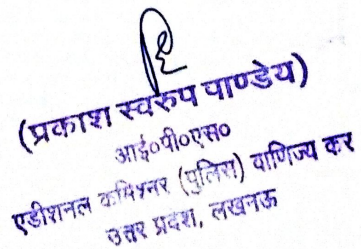 (प्रकाश स्वरुप पाण्डेय)
आई०पी०एस०
एडीशनल कमिश्नर (पुलिस) वाणिज्य कर
उत्तर प्रदेश, लखनऊ